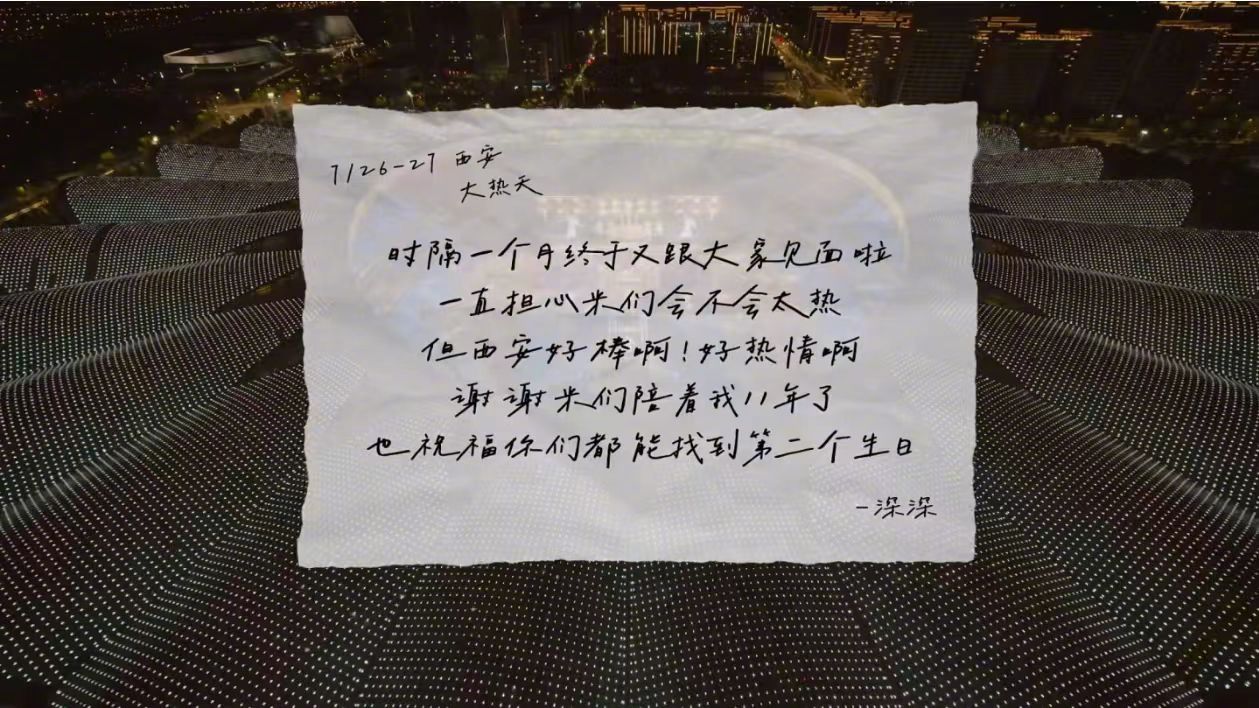 7/26-27 西安
大热天
时隔一个月终于又跟大家见面啦
一直担心米们会不会太热
但西安好棒啊！好热情啊
谢谢米们陪着我11年了
也祝福你们都能找到第二个生日
-深深